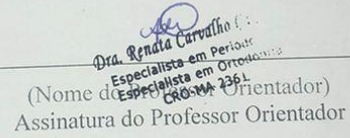 Dra. Renata Carvalho
Especialista em Period
Especialista em Ortodontia
CRO-MA 2361
(Nome do Professor Orientador)
Assinatura do Professor Orientador